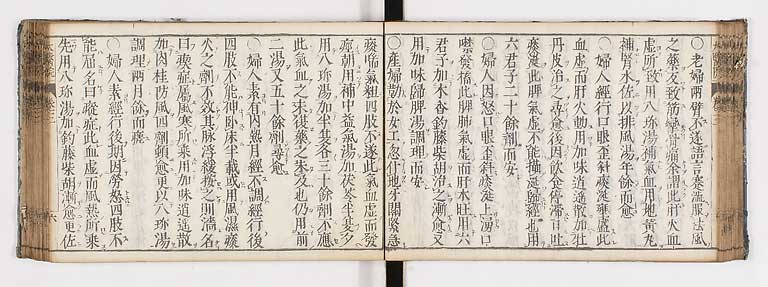 ○老婦兩臂不遂語言蹇澁服祛風
之藥反致筋攣骨痛余謂此肝火血
虛所致用八珍湯補氣血用地黃丸
補腎水佐以排風湯年餘而愈
○婦人經行口眼歪斜痰涎壅盛此
血虛而肝火動用加味逍遙散加牡
丹皮治之尋愈後因飲食停滯日吐
痰涎此脾氣虛不能攝涎歸經也用
六君子二十餘劑而安
○婦人因怒口眼歪斜痰涎上湧口
噤發搐此脾肺氣虛而肝木旺用六
君子加木香鈎藤柴胡治之漸愈又
用加味歸脾湯調理而安
○產婦勤於女工忽仆地牙關緊急
痰喘氣粗四肢不遂此氣血虛而發
朝用補中益氣湯加茯苓半夏夕
用八珍湯加半夏各三十餘劑不應
此氣血之未復藥之未及也仍用前
二湯又五十餘劑尋愈
○婦人素有內熱月經不調經行後
四肢不能伸臥床半載或用風濕痿
火之劑不效其脉浮緩按之則濇名
曰瘈症屬風寒所乘用加味逍遙散
加肉桂防風四劑頓愈更以八珍湯
調理兩月餘而痊
○婦人素經行後期因勞怒四肢不
能屈名曰瘲症此血虛而風熱所乘
先用八珍湯加鈎藤柴胡漸愈更佐